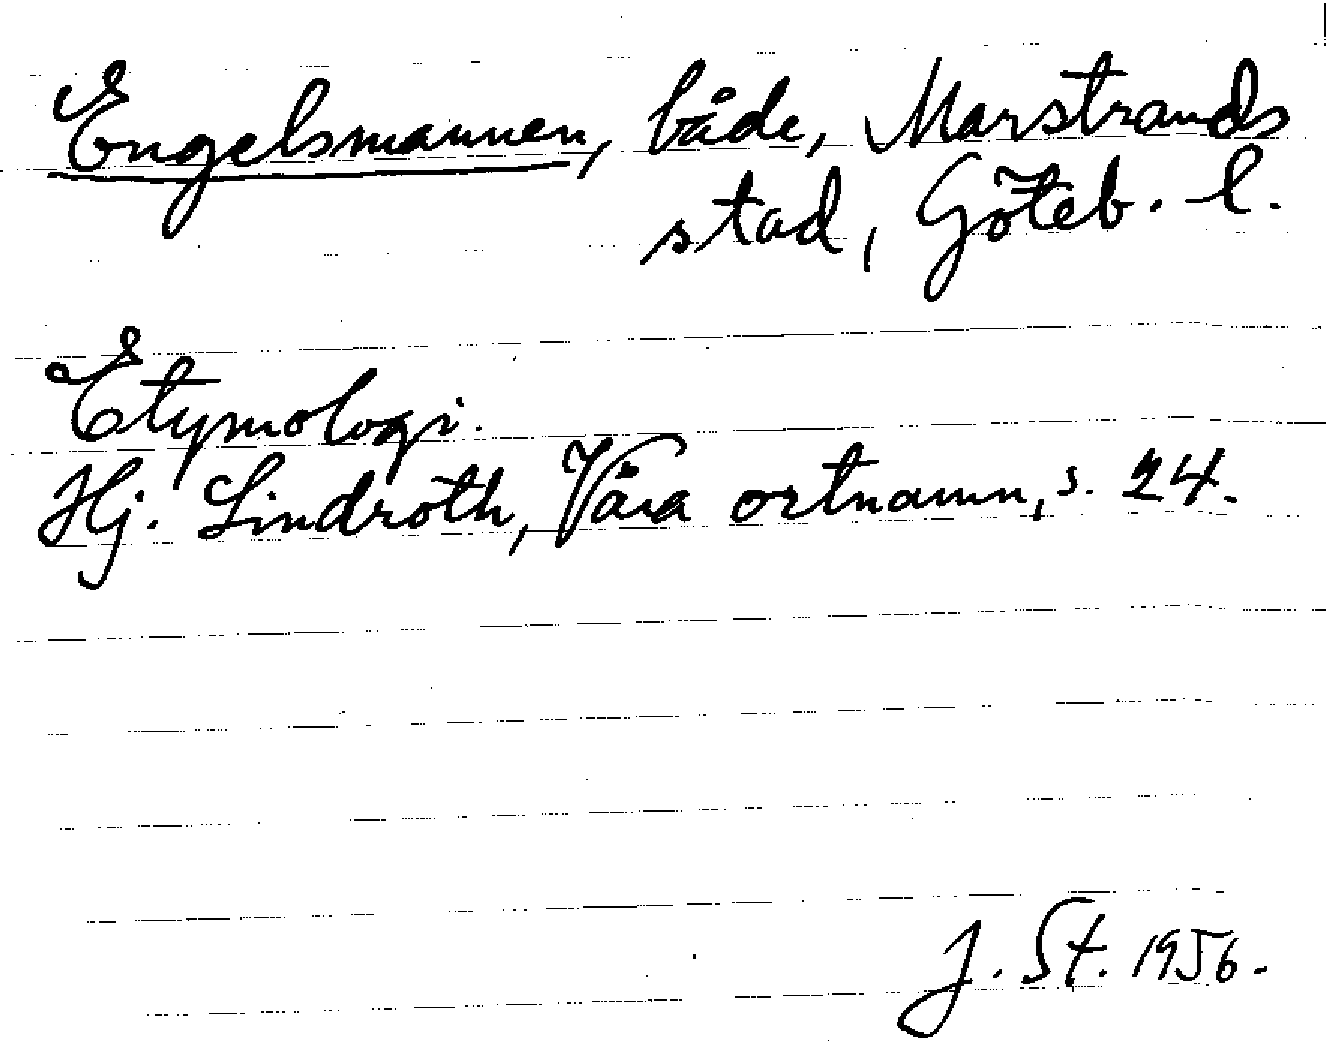 Engelsmannen, både, Marstrands
stad, Göteb. l.
Etymologi.
Hj. Lindroth, Våra ortnamn, s. 24.
J. St. 1956.